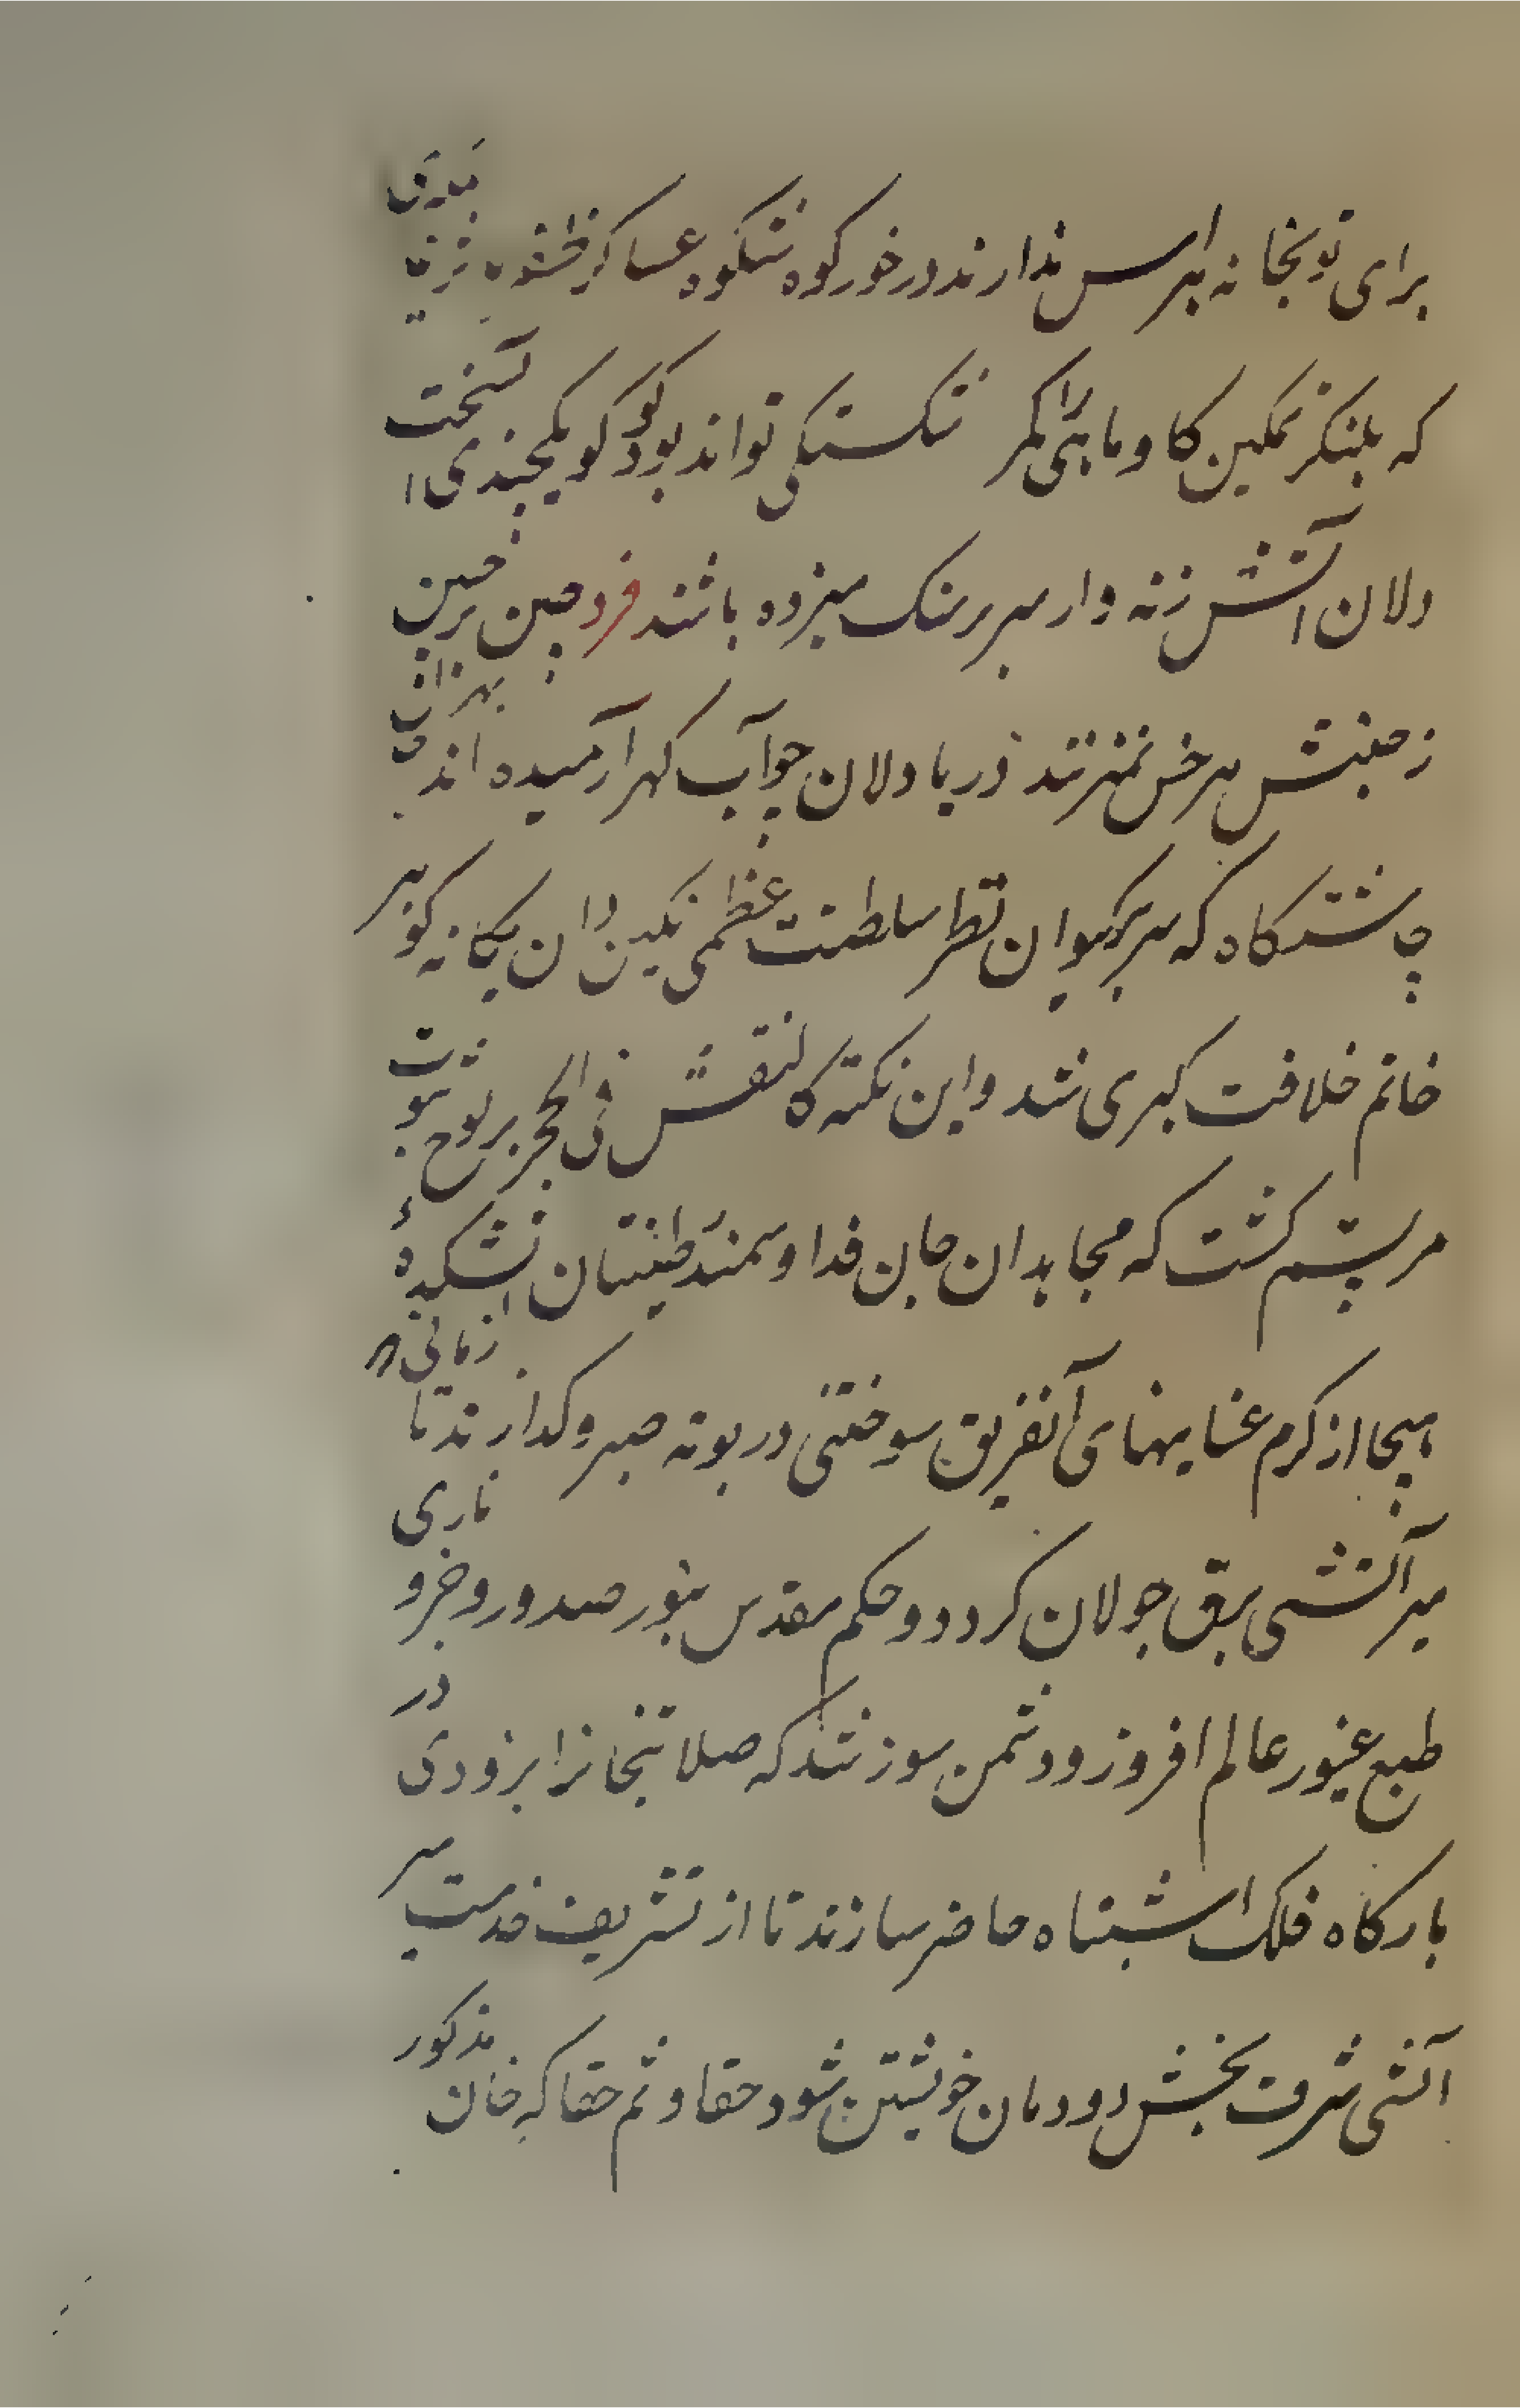 برای توپخانه هراس ندارند درخور کوه شکوه عساکر
که بلنکر تمکین کاو وماهی را کمر شکستگی تواند بود کو یکچندی سخت
دلان آتش زنه وار سر بر سنک میزده باشند فرد چین بر جبین
ز جنبش هر خس نمیزنند دریا دلان چو آب کهر آرمیده اند
چاشتکاه که سریر کیوان نظر سلطنت عظمی نکین دان یکانه کوهر
خاتم خلافت کبری شد واین نکته کالنقش فی الحجر بر لوح ثبوت
مرتسم کشت که مجاهدان جان فدا وسمندر طینتان آتشکدهٔ
هیجا از کرم عنانیهای آنفریق سوختنی در بوته صبر وکدازند تا زمانی
میر آتشی برق جولان کردد وحکم مقدس بنور صدور وخرو ناری
طبع غیور عالم افروز ودشمن سوز شد که صلابتخانرا بزودی در
بارکاه فلک اشتباه حاضر سازند تا از تشریف خدمت میر
آتشی شرف بخش دودمان خویشتن شود حقا وثم حقا که خان مذکور